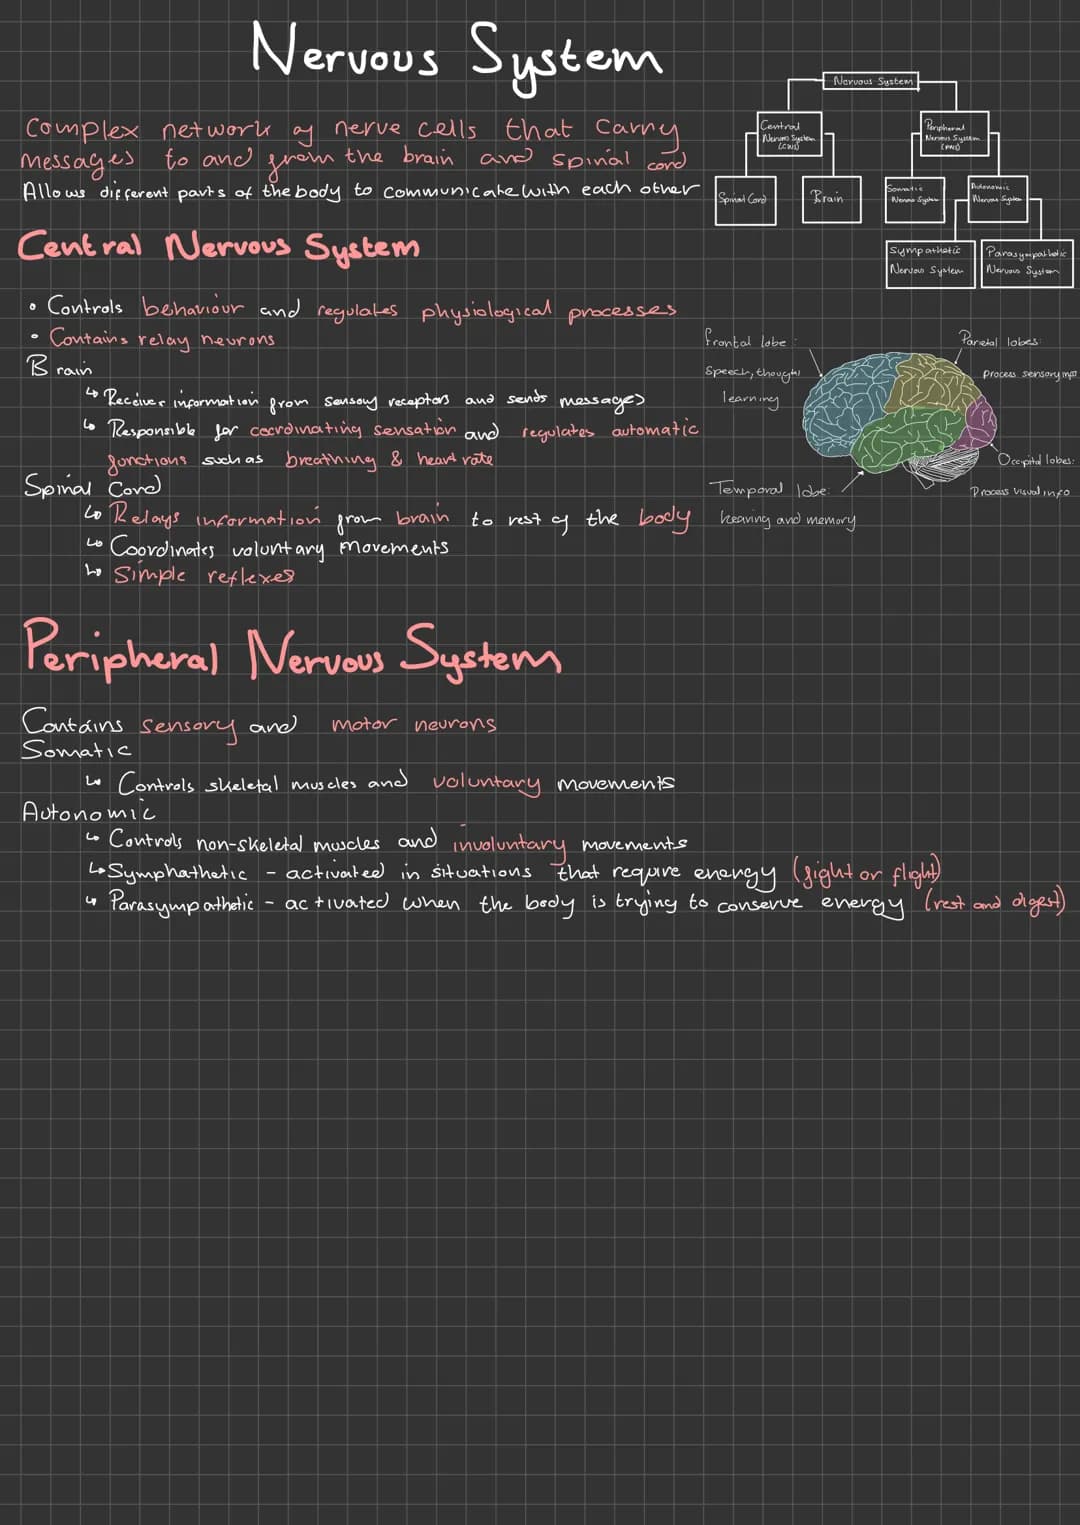 Nervous System
Complex network of nerve cells that carry
messages to and from the brain and spinal cord
Allows different parts of the body to communicate with each other
Nervous System
Central
Nervous System
(CNS)
Peripheral
Nervous System
(PNS)
Spinal Cord
Brain
Somatic
Nervous System
Autonomic
Nervous System
Sympathetic
Nervous System
Parasympathetic
Nervous System
Central Nervous System
• Controls behaviour and regulates physiological processes
• Contains relay neurons
Brain
↳ Receives information from sensory receptors and sends messages
↳ Responsible for coordinating sensation and regulates automatic
functions such as breathing & heart rate
Spinal Cord
↳ Relays information from brain to rest of the body
↳ Coordinates voluntary movements
↳ Simple reflexes
Frontal lobe:
speech, thought
learning
Parietal lobes:
process sensory info
Occipital lobes:
Process visual info
Temporal lobe:
hearing and memory
Peripheral Nervous System
Contains sensory and motor neurons
Somatic
↳ Controls skeletal muscles and voluntary movements
Autonomic
↳ Controls non-skeletal muscles and involuntary movements
↳ Symphathetic - activated in situations that require energy (fight or flight)
↳ Parasympathetic - activated when the body is trying to conserve energy (rest and digest)